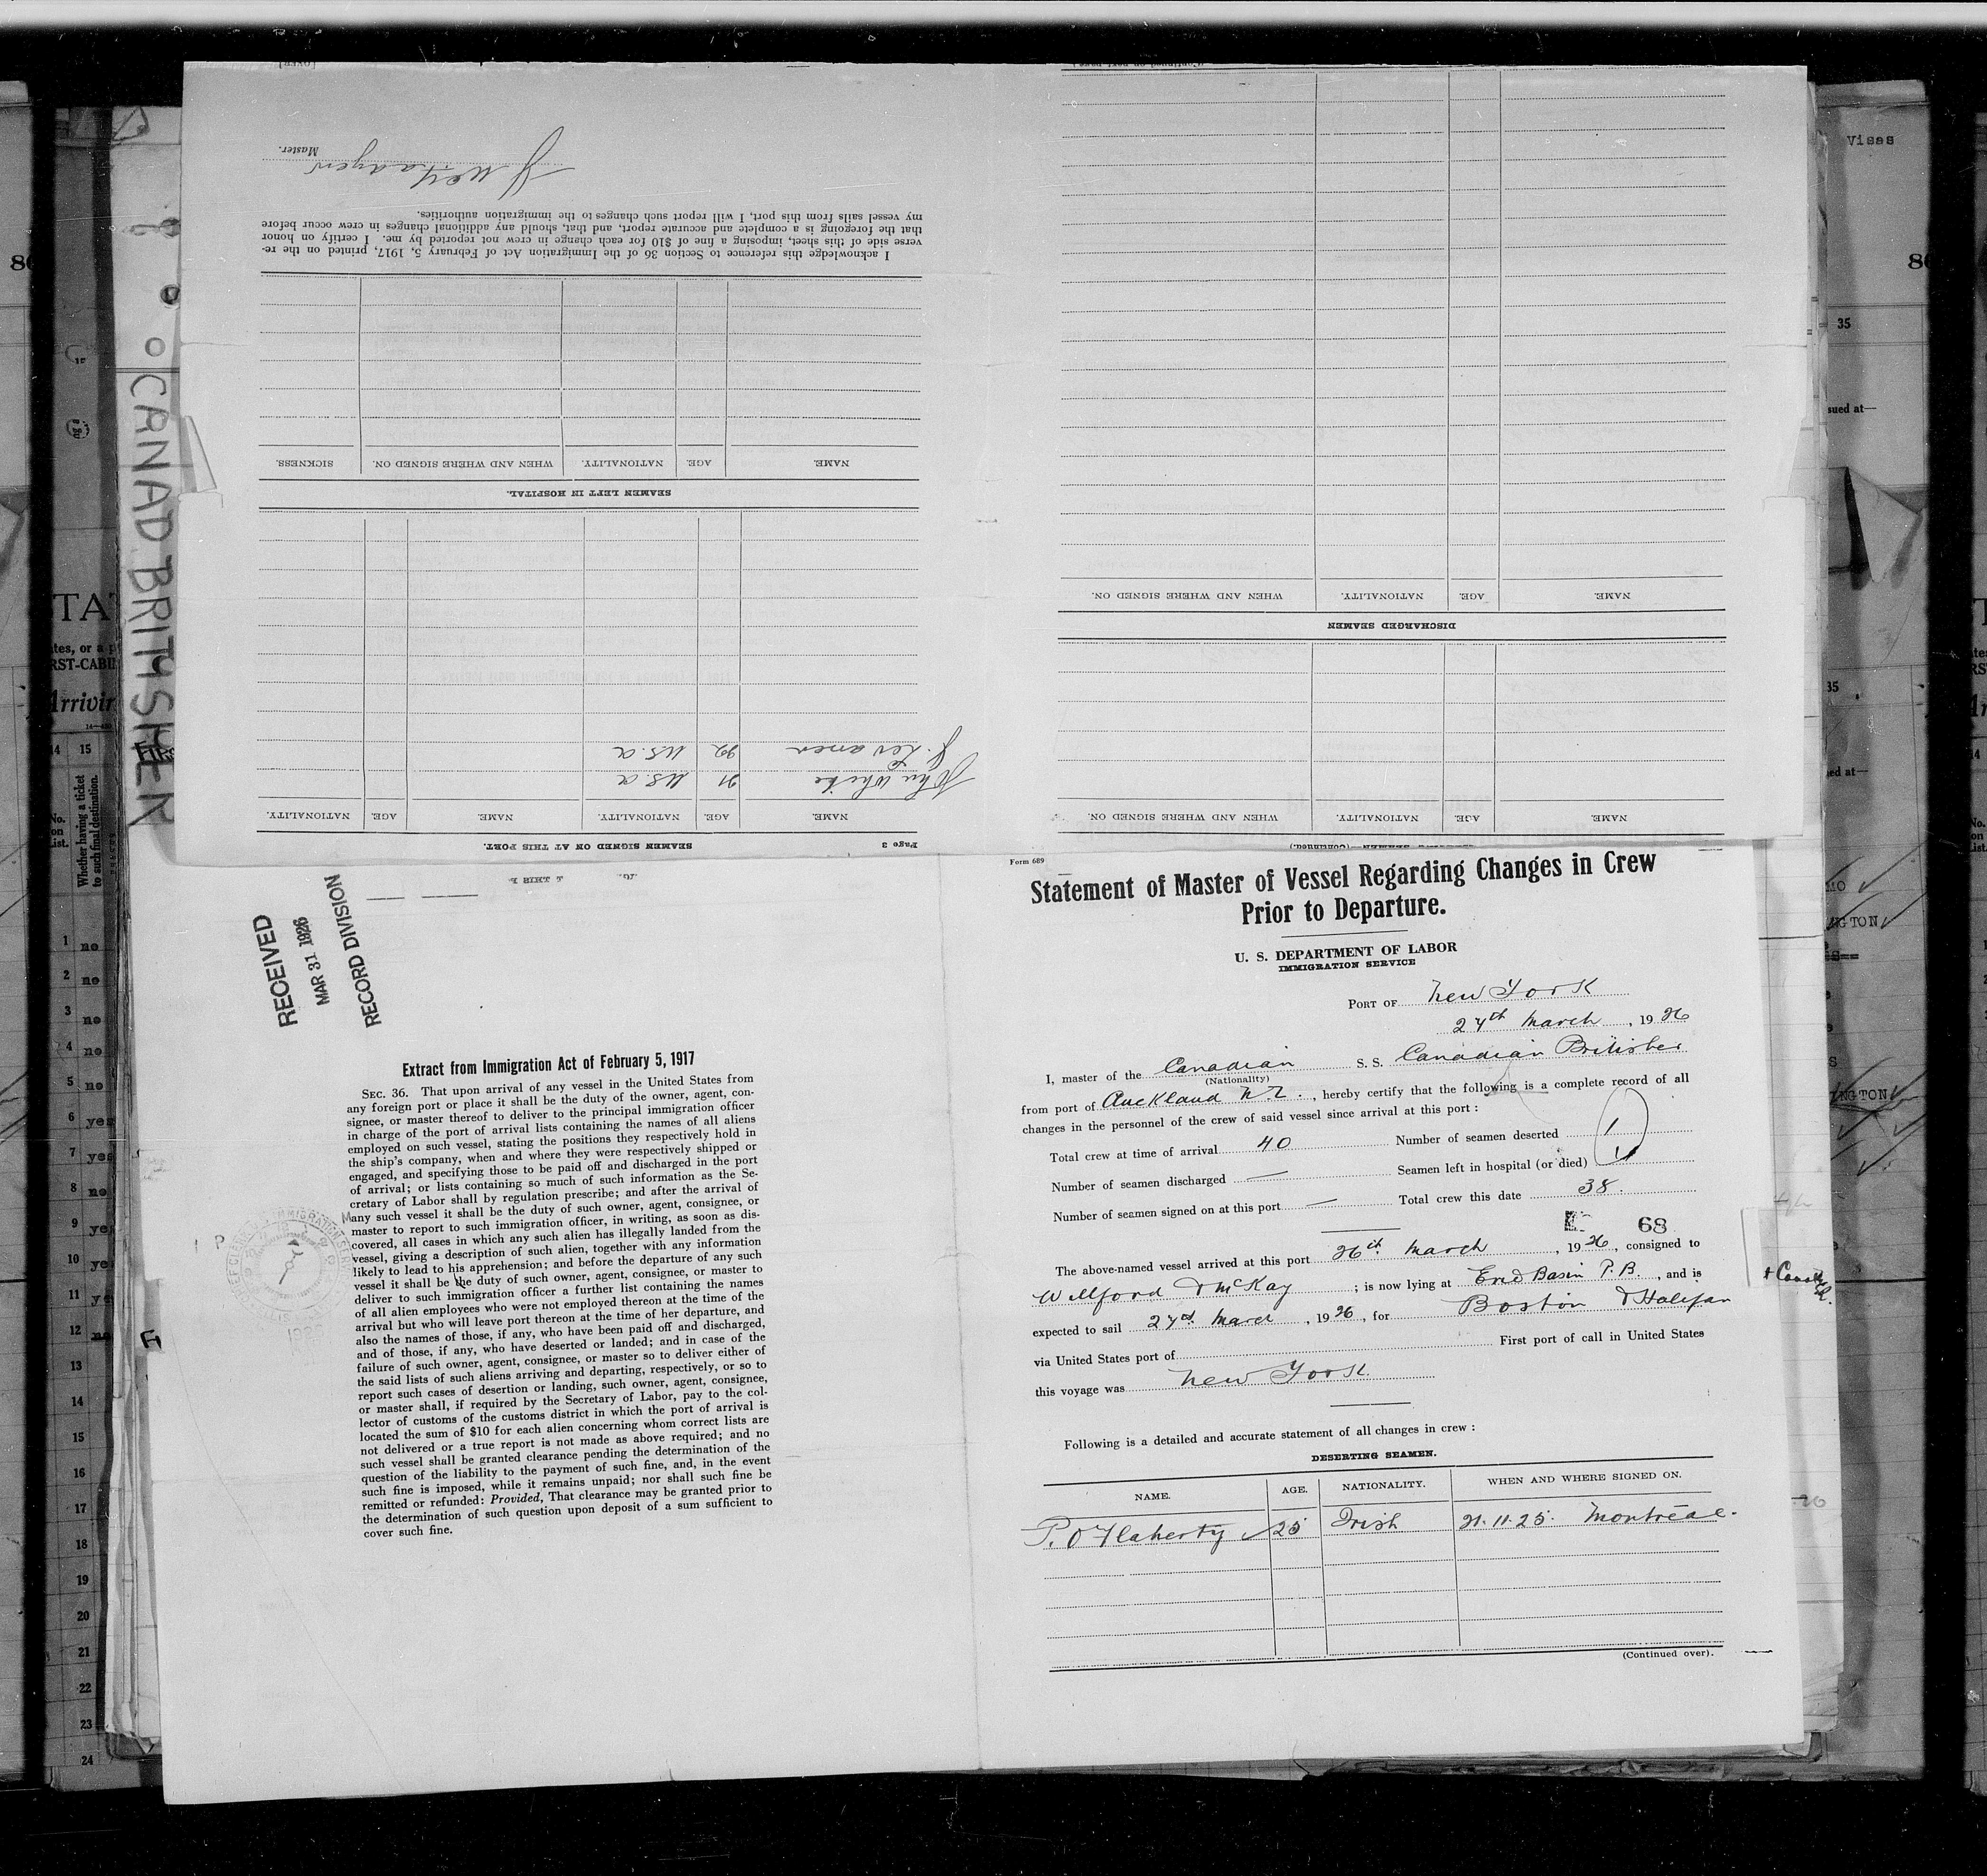 Form 689
Statement of Master of Vessel Regarding Changes in Crew
Prior to Departure.
U. S. DEPARTMENT OF LABOR
IMMIGRATION SERVICE
PORT OF New York
27th March, 1926
I, master of the Canadian S. S. Canadian Britisher
(Nationality)
from port of Auckland N.Z., hereby certify that the following is a complete record of all
changes in the personnel of the crew of said vessel since arrival at this port:
Total crew at time of arrival 40 Number of seamen deserted 1
Number of seamen discharged — Seamen left in hospital (or died) 1
Number of seamen signed on at this port — Total crew this date 38.
68
The above-named vessel arrived at this port 26th March, 1926, consigned to
Willford & McKay; is now lying at Erie Basin P.B., and is
expected to sail 27th March, 1926, for Boston & Halifax
via United States port of First port of call in United States
this voyage was New York.
Following is a detailed and accurate statement of all changes in crew:
DESERTING SEAMEN.
NAME. AGE. NATIONALITY. WHEN AND WHERE SIGNED ON.
P. O'Flaherty 25 Irish 21.11.25. Montreal.
(Continued over).
RECEIVED
MAR 31 1926
RECORD DIVISION
Extract from Immigration Act of February 5, 1917
SEC. 36. That upon arrival of any vessel in the United States from
any foreign port or place it shall be the duty of the owner, agent, con-
signee, or master thereof to deliver to the principal immigration officer
in charge of the port of arrival lists containing the names of all aliens
employed on such vessel, stating the positions they respectively hold in
the ship's company, when and where they were respectively shipped or
engaged, and specifying those to be paid off and discharged in the port
of arrival; or lists containing so much of such information as the Se-
cretary of Labor shall by regulation prescribe; and after the arrival of
any such vessel it shall be the duty of such owner, agent, consignee, or
master to report to such immigration officer, in writing, as soon as dis-
covered, all cases in which any such alien has illegally landed from the
vessel, giving a description of such alien, together with any information
likely to lead to his apprehension; and before the departure of any such
vessel it shall be the duty of such owner, agent, consignee, or master to
deliver to such immigration officer a further list containing the names
of all alien employees who were not employed thereon at the time of the
arrival but who will leave port thereon at the time of her departure, and
also the names of those, if any, who have been paid off and discharged,
and of those, if any, who have deserted or landed; and in case of the
failure of such owner, agent, consignee, or master so to deliver either of
the said lists of such aliens arriving and departing, respectively, or so to
report such cases of desertion or landing, such owner, agent, consignee,
or master shall, if required by the Secretary of Labor, pay to the col-
lector of customs of the customs district in which the port of arrival is
located the sum of $10 for each alien concerning whom correct lists are
not delivered or a true report is not made as above required; and no
such vessel shall be granted clearance pending the determination of the
question of the liability to the payment of such fine, and, in the event
such fine is imposed, while it remains unpaid; nor shall such fine be
remitted or refunded: Provided, That clearance may be granted prior to
the determination of such question upon deposit of a sum sufficient to
cover such fine.
DISCHARGED SEAMEN
NAME. AGE. NATIONALITY. WHEN AND WHERE SIGNED ON.
NAME. AGE. NATIONALITY. WHEN AND WHERE SIGNED ON.
Page 3
SEAMEN SIGNED ON AT THIS PORT.
NAME. AGE. NATIONALITY. NAME. AGE. NATIONALITY.
John White 21 U.S.a
J. 22 U.S.a
SEAMEN LEFT IN HOSPITAL.
NAME. AGE. NATIONALITY. WHEN AND WHERE SIGNED ON. SICKNESS.
I acknowledge this reference to Section 36 of the Immigration Act of February 5, 1917, printed on the re-
verse side of this sheet, imposing a fine of $10 for each change in crew not reported by me. I certify on honor
that the foregoing is a complete and accurate report, and that, should any additional changes in crew occur before
my vessel sails from this port, I will report such changes to the immigration authorities.
Master.
(OVER)
CANAD. BRITISHER
Visas
35
sued at—
Whether having a ticket
to such final destination.
No.
on
List.
14 15
1 no
2 no
3 no
4 no
5 no
6 yes
7 yes
8 no
9 yes
10 ye
11 ye
12 no
13
14
15
16
17
18
19
20
21
22
23
24